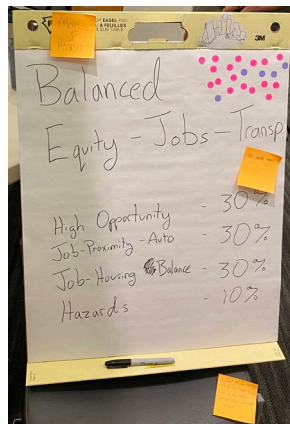 EASEL PAD
A FEUILLES
SUR TABLE
3M
Balanced
Equity - Jobs - Transp
High Opportunity - 30%
Job-Proximity-Auto - 30%
Job-Housing Balance - 30%
Hazards - 10%